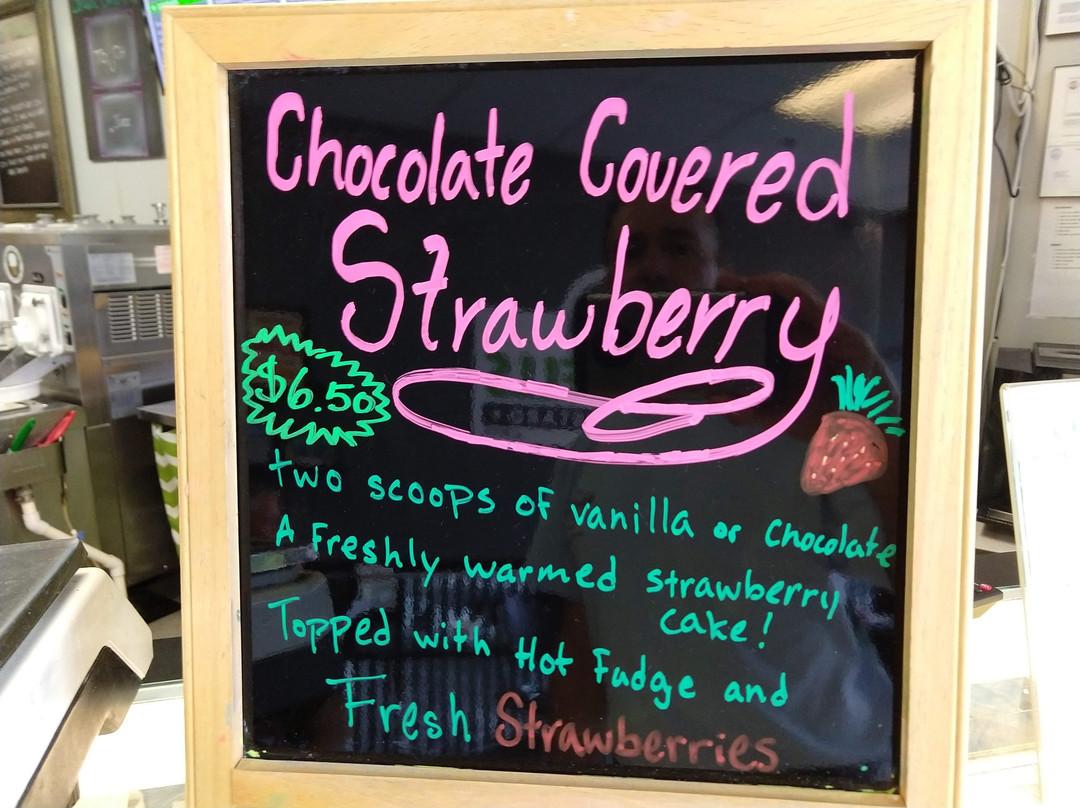 Chocolate Covered
Strawberry
$6.50
two scoops of vanilla or chocolate
A Freshly warmed strawberry
cake!
Topped with Hot Fudge and
Fresh Strawberries